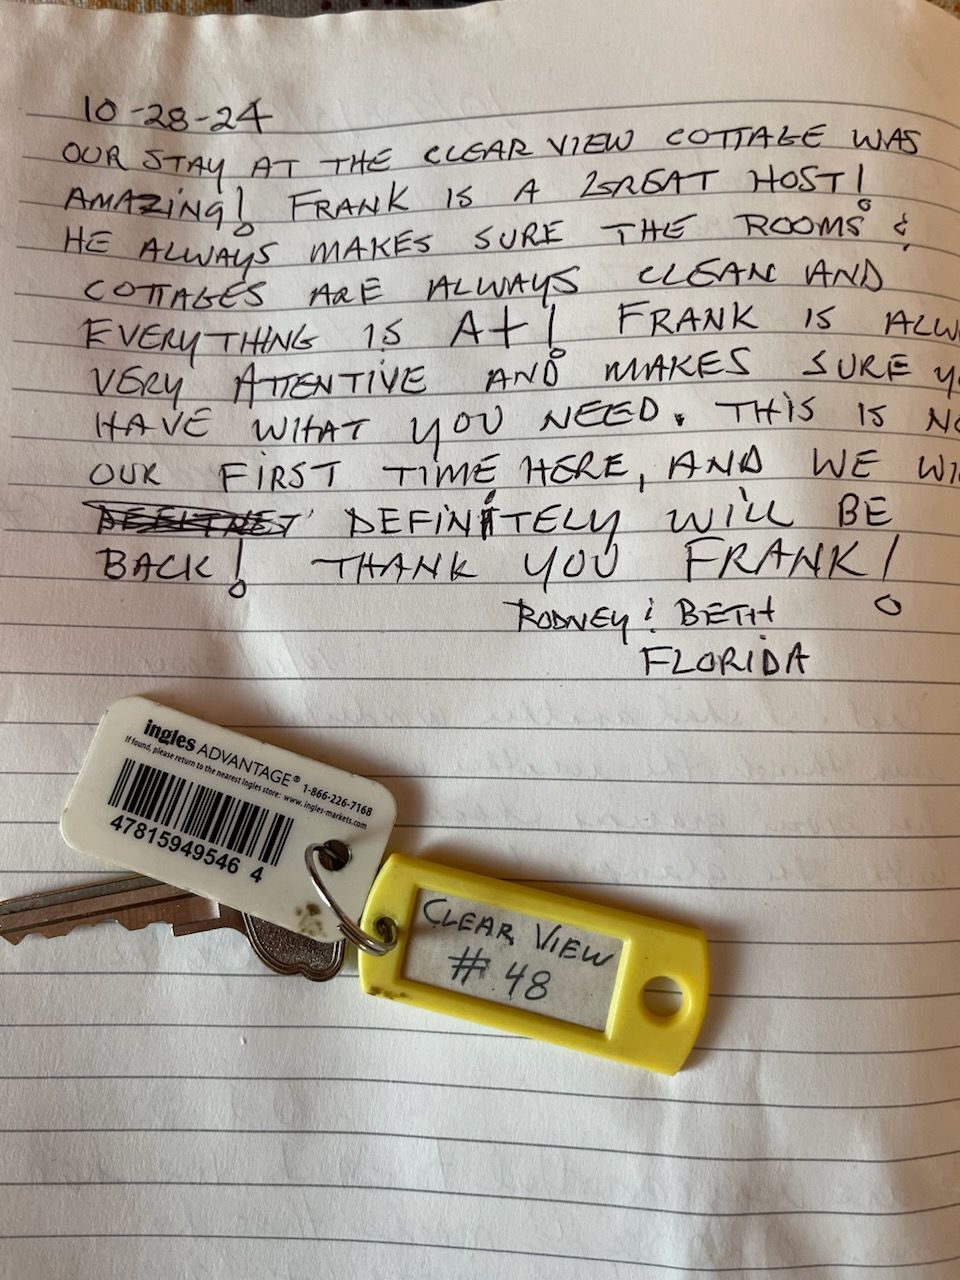 10-28-24
OUR STAY AT THE CLEAR VIEW COTTAGE WAS
AMAZING! FRANK IS A GREAT HOST!
HE ALWAYS MAKES SURE THE ROOMS &
COTTAGES ARE ALWAYS CLEAN AND
EVERYTHING IS A+! FRANK IS ALW
VERY ATTENTIVE AND MAKES SURE YO
HAVE WHAT YOU NEED. THIS IS NO
OUR FIRST TIME HERE, AND WE WI
DEFINITELY WILL BE
BACK! THANK YOU FRANK!
RODNEY & BETH
FLORIDA
ingles ADVANTAGE® 1-866-226-7168
If found, please return to the nearest Ingles store: www.ingles-markets.com
47815949546 4
CLEAR VIEW
# 48